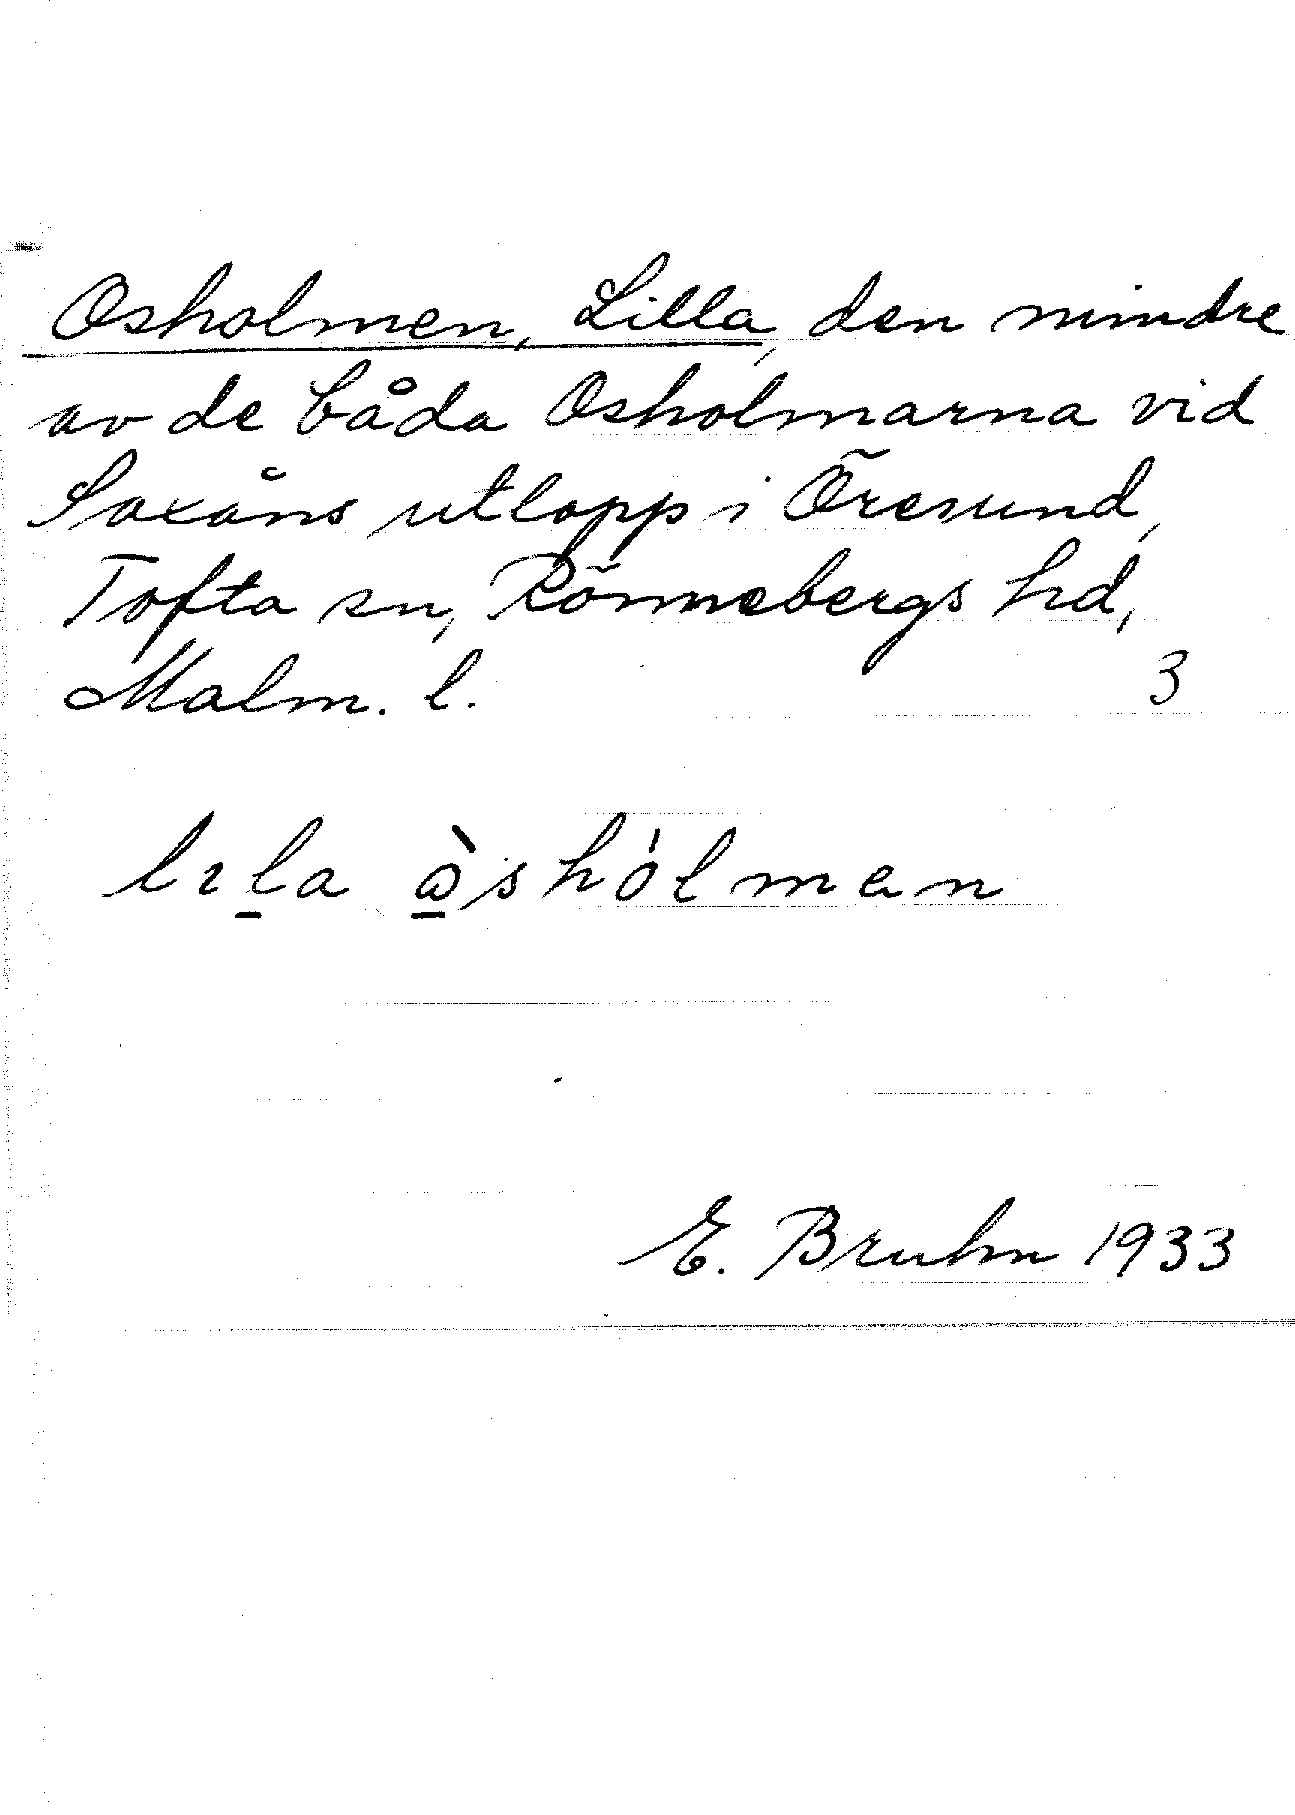 Osholmen, Lilla, den mindre
av de båda Osholmarna vid
Saxåns utlopp i Öresund,
Tofta sn, Rönnebergs hd,
Malm. l. 3
E. Bruhn 1933